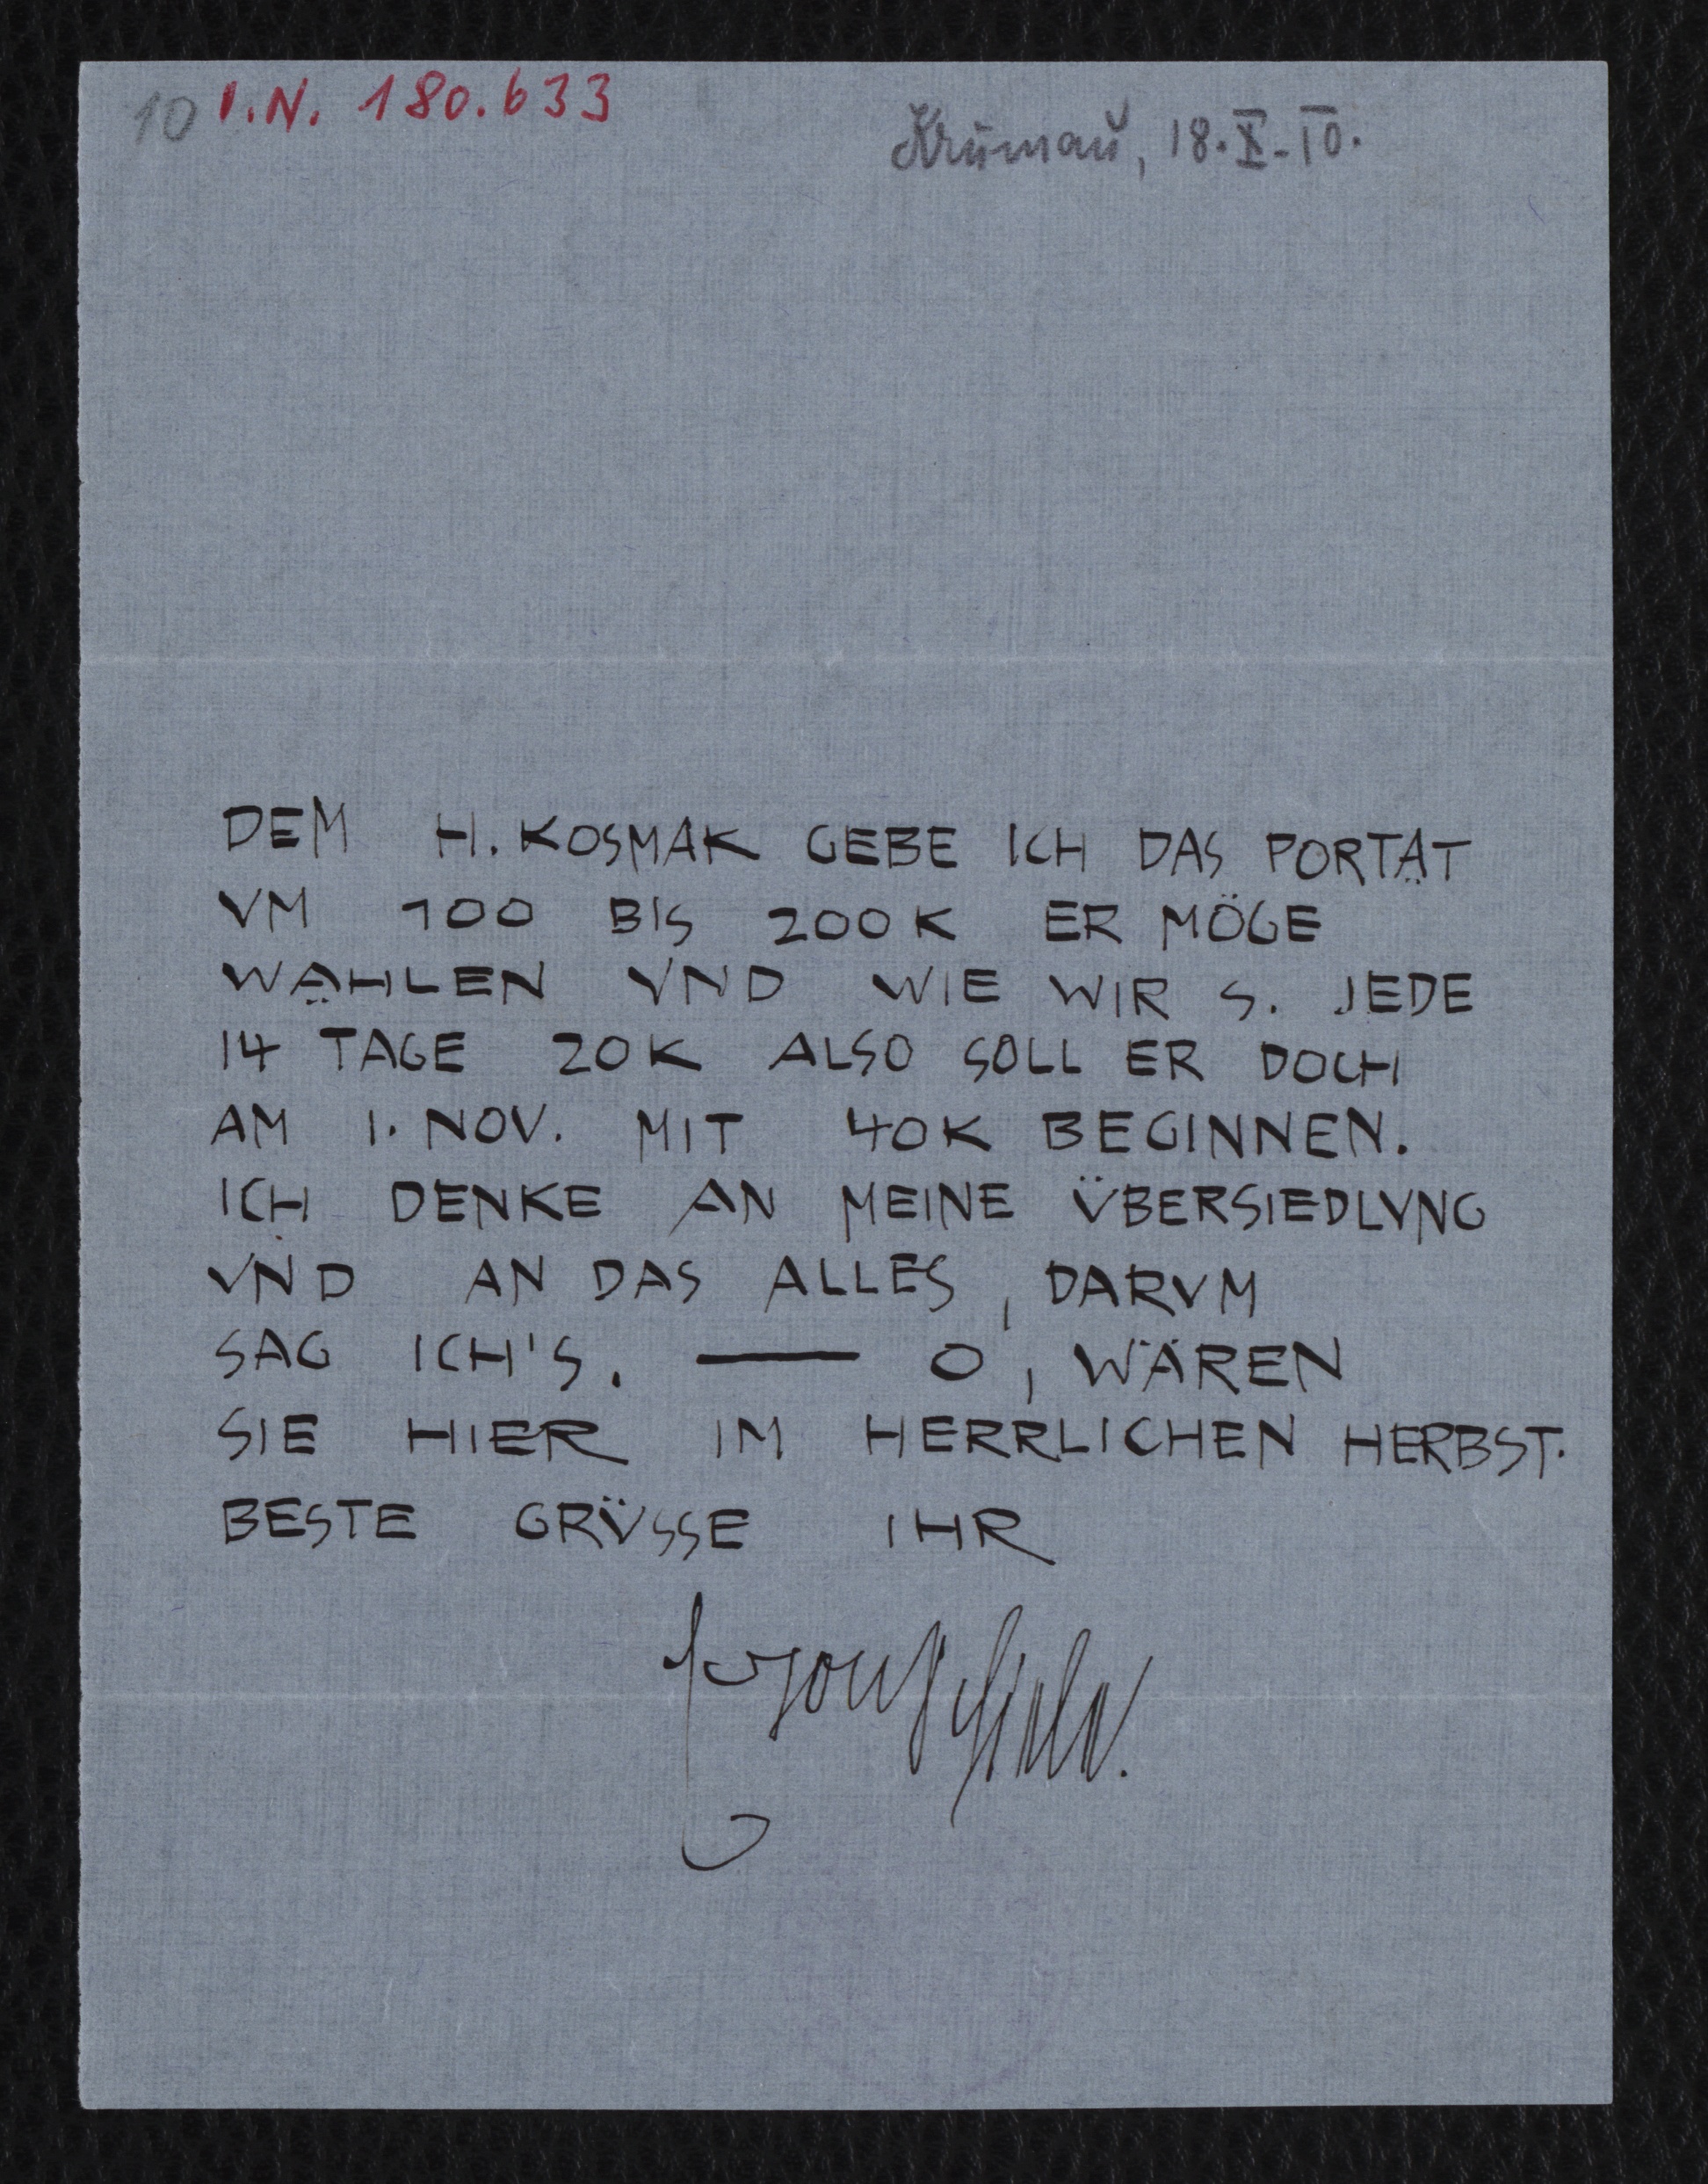 10 I.N. 180.633
Krumau, 18.X.10.
DEM H. KOSMAK GEBE ICH DAS PORTÄT
VM 100 BIS 200 K ER MÖGE
WÄHLEN VND WIE WIR S. JEDE
14 TAGE 20 K ALSO SOLL ER DOCH
AM 1. NOV. MIT 40 K BEGINNEN.
ICH DENKE AN MEINE ÜBERSIEDLVNG
VND AN DAS ALLES, DARVM
SAG ICH'S. — O, WÄREN
SIE HIER IM HERRLICHEN HERBST.
BESTE GRÜSSE IHR
Egon Schiele.